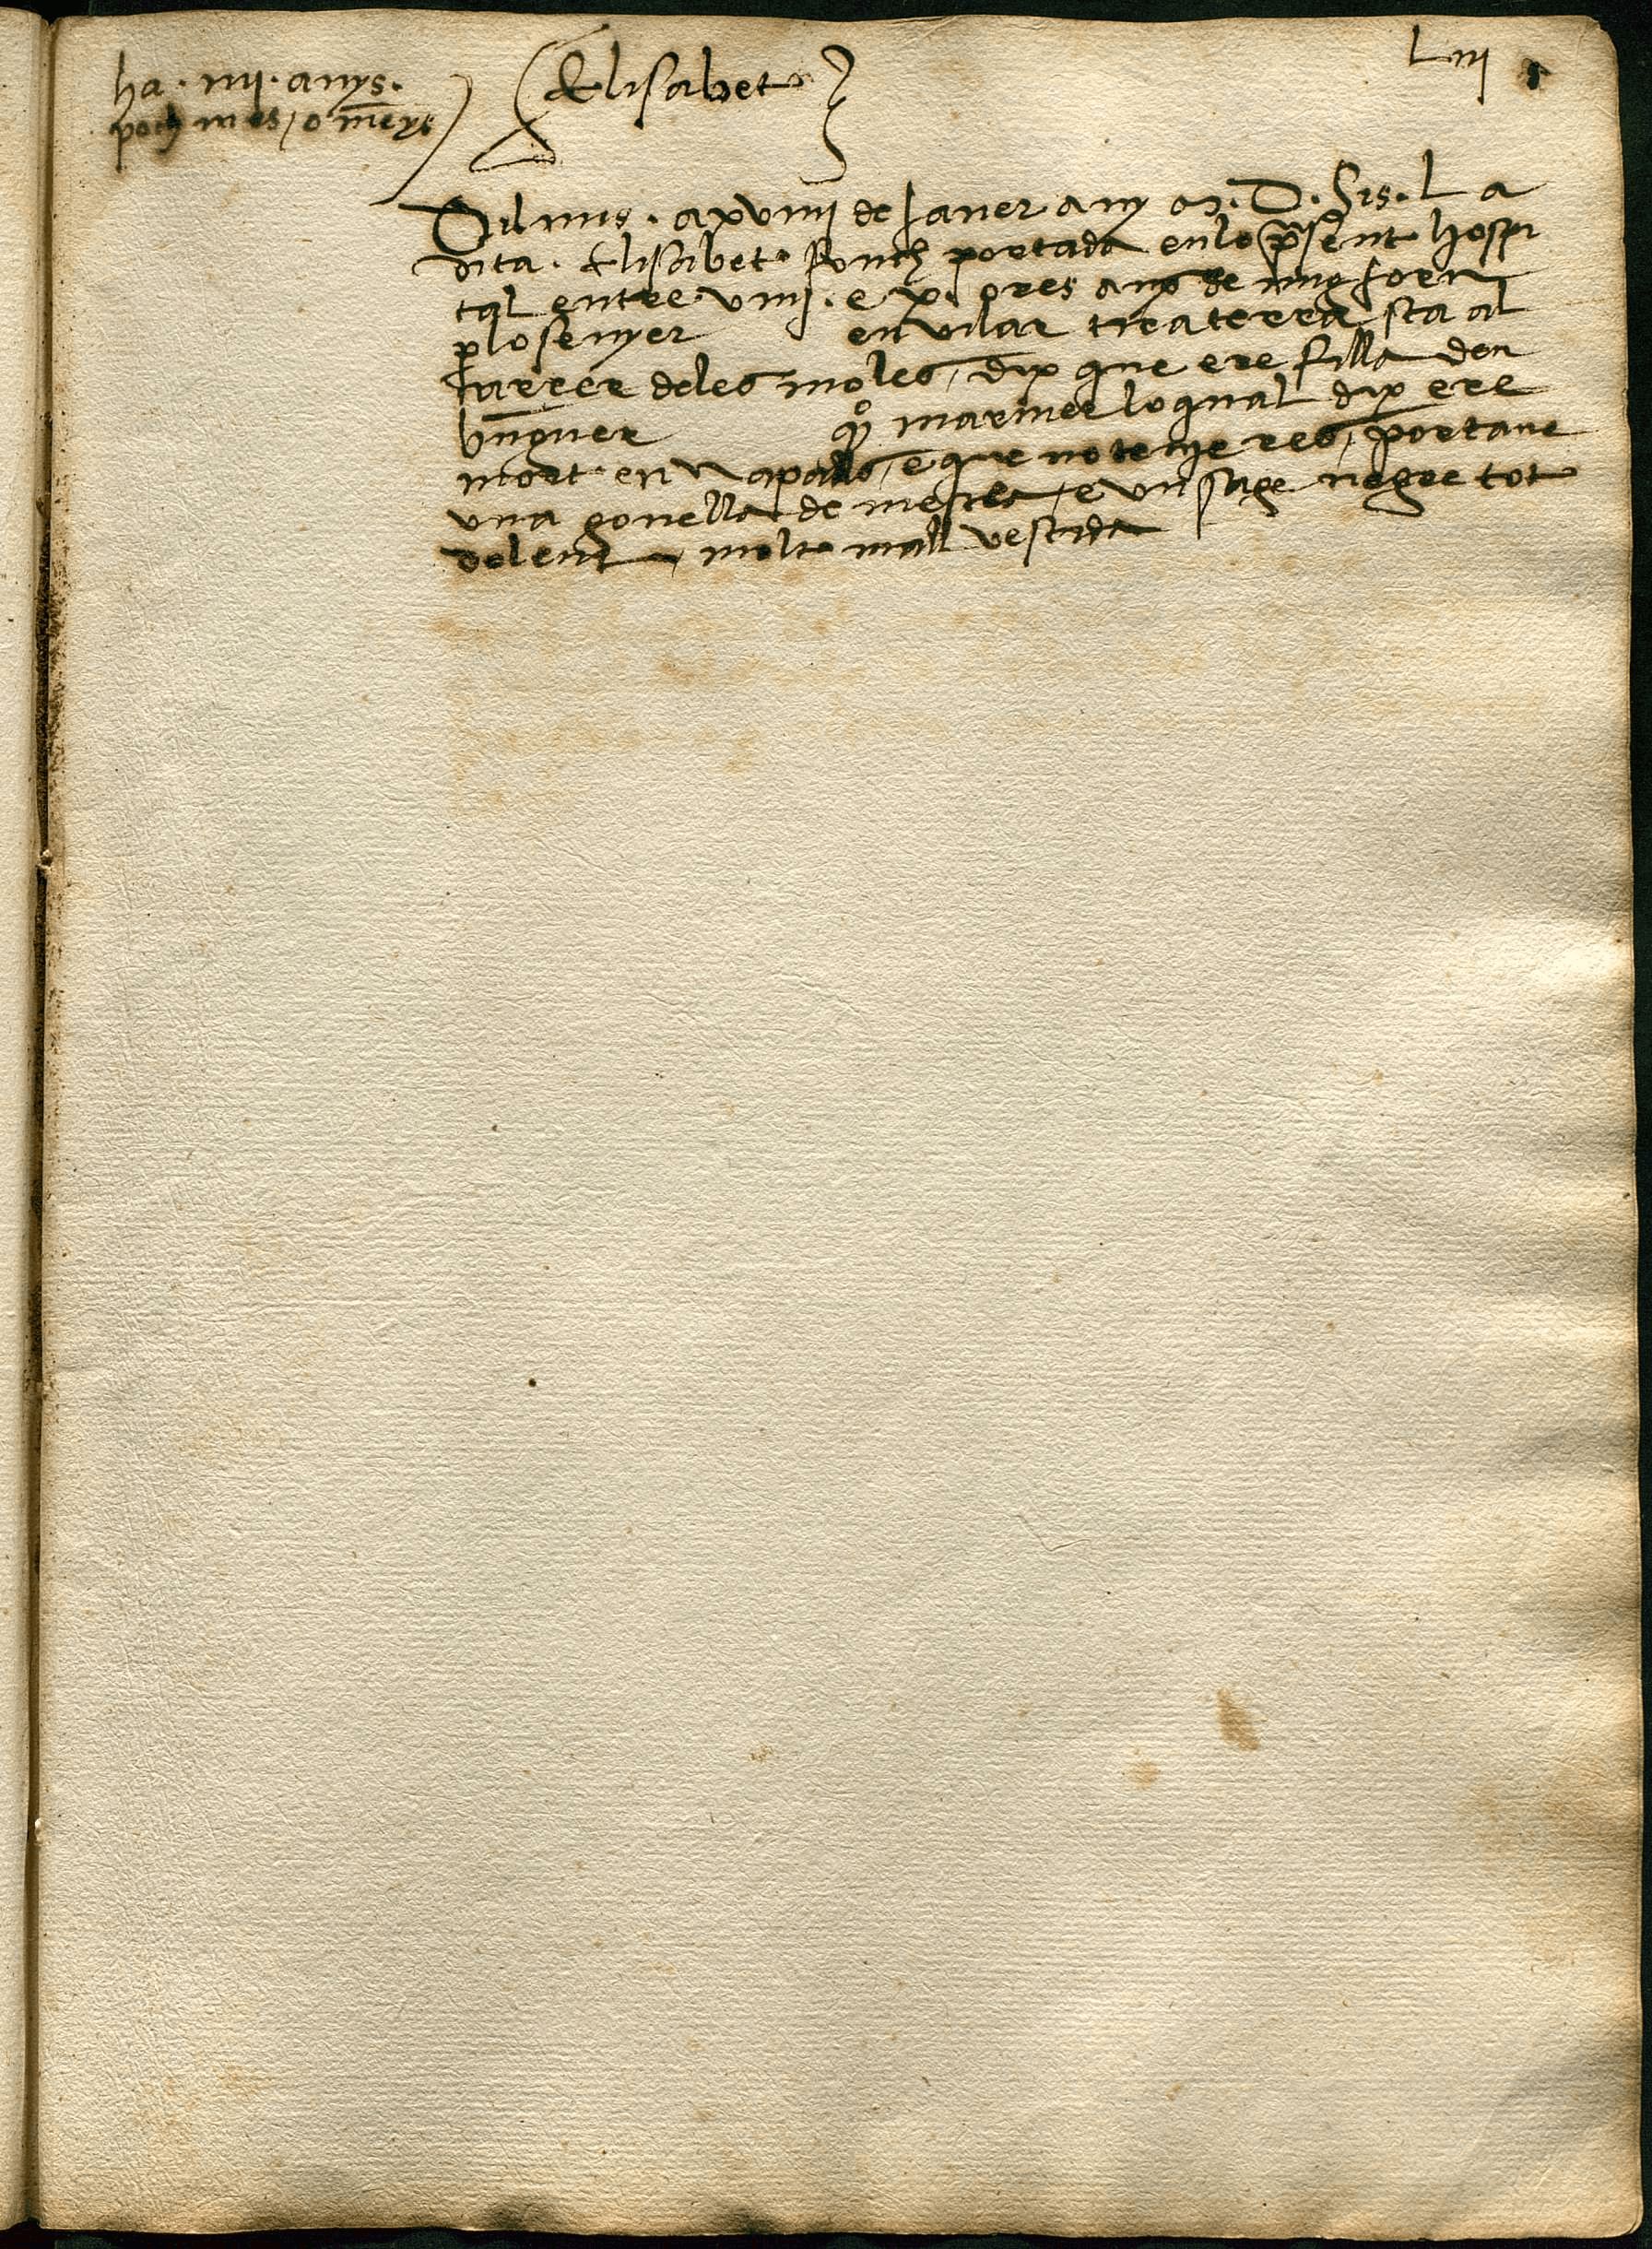 Liii
ha · iiii · anys ·
poch mes / o mēys
Elisabet
Dilluns · a xviiii de Janer any M · D · Sis · L a
dita · Elisabet · fonch portada en lo p̄sent hospi
tal entre · viiii · e x · ores ans de mig jorn
p̱ lo senyer en vilar tiraterra sta al
carrer deles moles / dix que ere filla den
bn̄guer qº mariner lo qual dix ere
mort en Napols / e que no tenie res / portaue
vna gonella de mescla / e vn sage negre tot
dolent / molt mall vestida